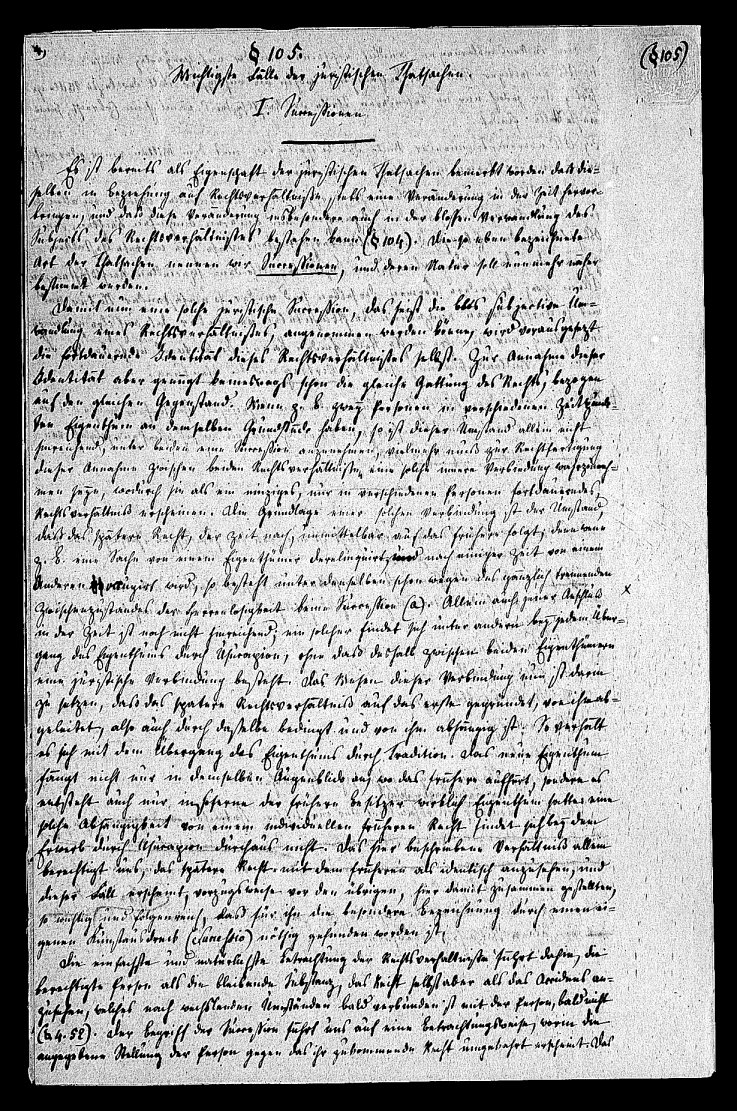 § 105.
(§ 105)
Wichtigste Fälle der juristischen Thatsachen.
I. Successionen
Es ist bereits als Eigenschaft der juristischen Thatsachen bemerkt worden daß die-
selben in Beziehung auf Rechtsverhältnisse stets eine Veränderung in der Zeit hervor-
bringen, und daß diese Veränderung insbesondere auch in der bloßen Verwandlung des
Subjects des Rechtsverhältnisses bestehen kann (§ 104). Diese eben bezeichnete
Art der Thatsachen nennen wir Successionen, und deren Natur soll nunmehr näher
bestimmt werden.
Damit nun eine solche juristische Succession, das heißt die blos subjective Um-
wandlung eines Rechtsverhältnisses, angenommen werden könne, wird vorausgesetzt
die fortdauernde Identität dieses Rechtsverhältnisses selbst. Zur Annahme dieser
Identität aber genügt keineswegs schon die gleiche Gattung des Rechts, bezogen
auf den gleichen Gegenstand. Wenn z. B. zwey Personen in verschiedenen Zeitpunk-
ten Eigenthum an demselben Grundstück haben, so ist dieser Umstand allein nicht
hinreichend, unter beiden eine Succession anzunehmen, vielmehr muß zur Rechtfertigung
dieser Annahme zwischen beiden Rechtsverhältnissen eine solche innere Verbindung wahrzuneh-
men seyn, wodurch sie als ein einziges, nur in verschiedenen Personen fortdauerndes,
Rechtsverhältniß erscheinen. Die Grundlage einer solchen Verbindung ist der Umstand,
daß das spätere Recht, der Zeit nach, unmittelbar auf das frühere folgt; denn wenn
z. B. eine Sache von einem Eigenthümer derelinquirt, und nach einiger Zeit von einem
Anderen occupirt wird, so besteht unter denselben schon wegen des gänzlich trennenden
Zwischenzustandes der Herrenlosigkeit keine Succession (a). Allein auch jener Anschluß
in der Zeit ist noch nicht hinreichend; ein solcher findet sich unter andern bey jedem Über-
gang des Eigenthums durch Usucapion, ohne daß deshalb zwischen beiden Eigenthümern
eine juristische Verbindung besteht. Das Wesen dieser Verbindung nun ist darin
zu setzen, daß das spätere Rechtsverhältniß auf das erste gegründet, von ihm ab-
geleitet, also auch durch dasselbe bedingt und von ihm abhängig ist. So verhält
es sich mit dem Übergang des Eigenthums durch Tradition. Das neue Eigenthum
fängt nicht nur in demselben Augenblicke an, wo das frühere aufhört, sondern es
entsteht auch nur, insoferne der frühere Besitzer wirklich Eigenthum hatte: eine
solche Abhängigkeit von einem individuellen früheren Recht findet sich bey dem
Erwerb durch Usucapion durchaus nicht. Das hier beschriebene Verhältniß allein
berechtigt uns, das spätere Recht mit dem früheren als identisch anzusehen, und
dieser Fall erscheint, vorzugsweise vor den übrigen, hier damit zusammen gestellten,
so wichtig und folgenreich, daß für ihn die besondere Bezeichnung durch einen ei-
genen Kunstausdruck (Successio) nöthig gefunden worden ist.
Die einfachste und natürlichste Betrachtung der Rechtsverhältnisse führt dahin, die
berechtigte Person als die bleibende Substanz, das Recht selbst aber als das Accidens an-
zusehen, welches nach wechslenden Umständen bald verbunden ist mit der Person, bald nicht
(§ 4. 52). Der Begriff der Succession führt uns auf eine Betrachtungsweise, worin die
angegebene Stellung der Person gegen das ihr zukommende Recht umgekehrt erscheint. Das